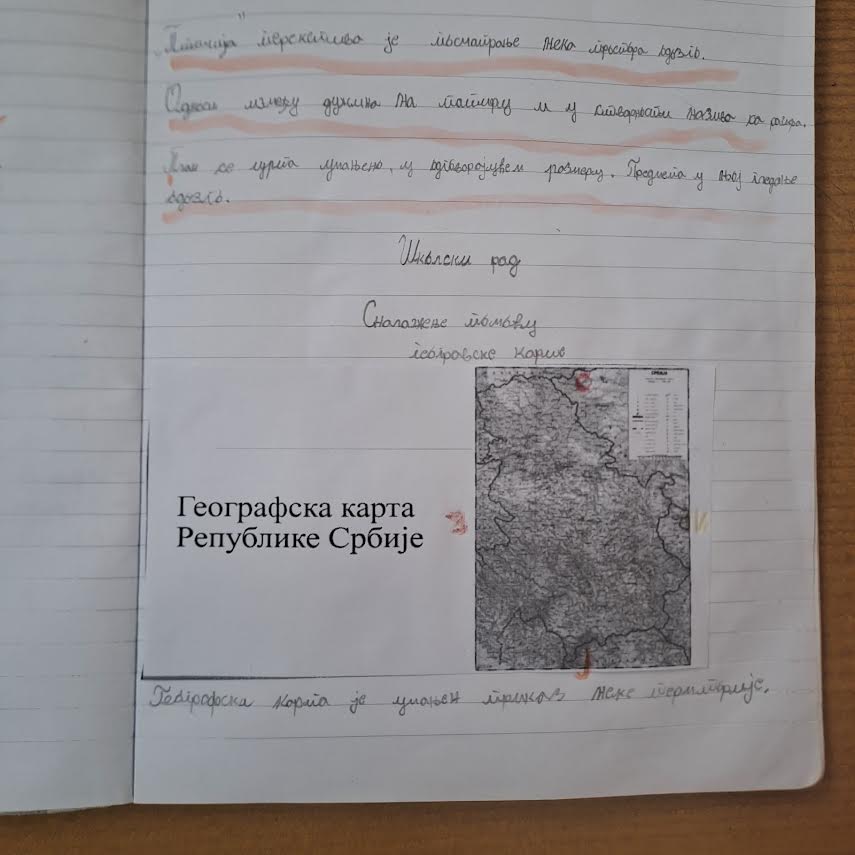 „Птичија" перспектива је посматрање неког простора одозго.
Однос између дужина на папиру и у стварности назива се размера.
План се црта умањено, у одговарајућем размеру. Предмети у њој гледање
одозго.
Школски рад
Сналажење помоћу
географске карте
СРБИЈА
С
Географска карта
Републике Србије
З
И
Ј
Географска карта је умањен приказ неке територије.